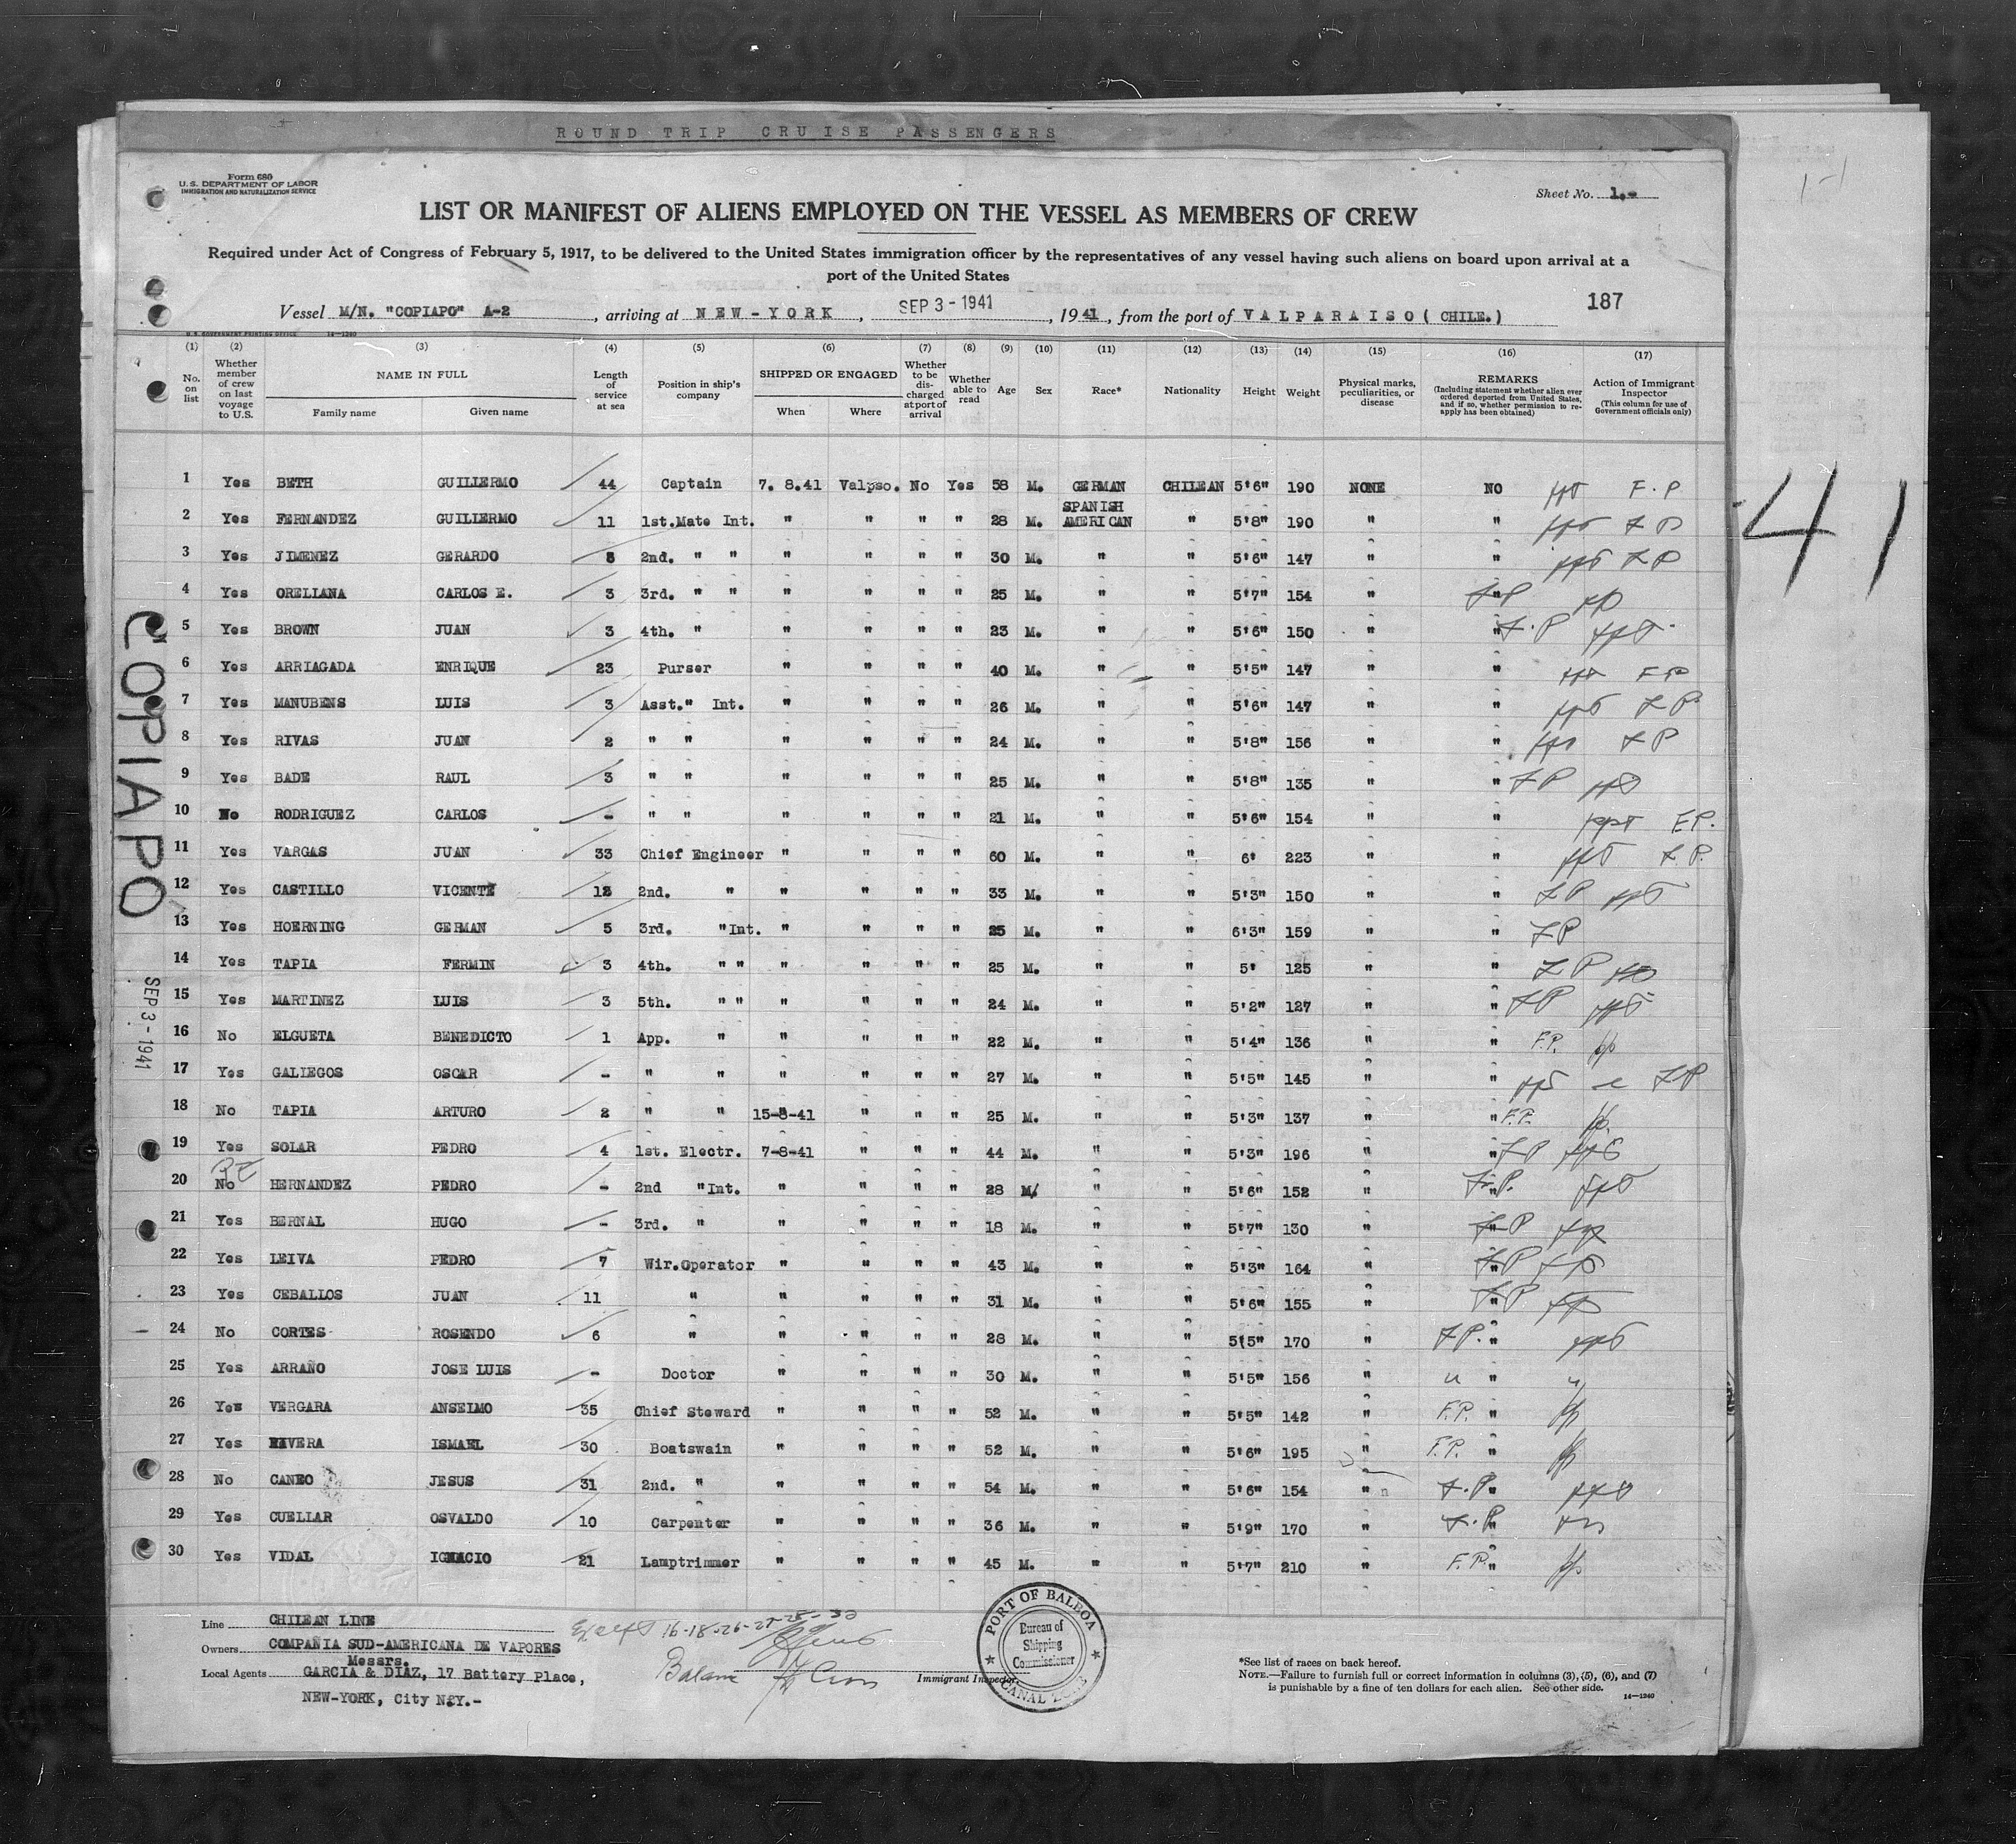 ROUND TRIP CRUISE PASSENGERS
Form 680
U. S. DEPARTMENT OF LABOR
IMMIGRATION AND NATURALIZATION SERVICE
Sheet No. 1.-
LIST OR MANIFEST OF ALIENS EMPLOYED ON THE VESSEL AS MEMBERS OF CREW
Required under Act of Congress of February 5, 1917, to be delivered to the United States immigration officer by the representatives of any vessel having such aliens on board upon arrival at a
port of the United States
Vessel M/N. "COPIAPO" A-2, arriving at NEW-YORK, SEP 3 - 1941, 1941, from the port of VALPARAISO (CHILE.) 187
U. S. GOVERNMENT PRINTING OFFICE 14-1240
(1) (2) (3) (4) (5) (6) (7) (8) (9) (10) (11) (12) (13) (14) (15) (16) (17)
No. on list Whether member of crew on last voyage to U.S. NAME IN FULL Family name Given name Length of service at sea Position in ship's company SHIPPED OR ENGAGED When Where Whether to be discharged at port of arrival Whether able to read Age Sex Race* Nationality Height Weight Physical marks, peculiarities, or disease REMARKS (Including statement whether alien ever ordered deported from United States, and if so, whether permission to reapply has been obtained) Action of Immigrant Inspector (This column for use of Government officials only)
1 Yes BETH GUILLERMO 44 Captain 7. 8.41 Valpso. No Yes 58 M. GERMAN CHILEAN 5'6" 190 NONE NO ppt F.P.
2 Yes FERNANDEZ GUILLERMO 11 1st.Mate Int. " " " " 28 M. SPANISH AMERICAN " 5'8" 190 " " ppt F P
3 Yes JIMENEZ GERARDO 8 2nd. " " " " " " 30 M. " " 5'6" 147 " " ppt F P
4 Yes ORELLANA CARLOS E. 3 3rd. " " " " " " 25 M. " " 5'7" 154 " " F P
5 Yes BROWN JUAN 3 4th. " " " " " 23 M. " " 5'6" 150 " " F.P ppt
6 Yes ARRIAGADA ENRIQUE 23 Purser " " " " 40 M. " " 5'5" 147 " " ppt F P
7 Yes MANUBENS LUIS 3 Asst." Int. " " " " 26 M. " " 5'6" 147 " " ppt F P
8 Yes RIVAS JUAN 2 " " " " " " 24 M. " " 5'8" 156 " " ppt F P
9 Yes BADE RAUL 3 " " " " " " 25 M. " " 5'8" 135 " " F P ppt
10 No RODRIGUEZ CARLOS - " " " " " " 21 M. " " 5'6" 154 " " ppt F.P.
11 Yes VARGAS JUAN 33 Chief Engineer " " " " 60 M. " " 6' 223 " " ppt F.P.
12 Yes CASTILLO VICENTE 12 2nd. " " " " " 33 M. " " 5'3" 150 " " F P ppt
13 Yes HOERNING GERMAN 5 3rd. "Int. " " " " 25 M. " " 6'3" 159 " " F P
14 Yes TAPIA FERMIN 3 4th. " " " " " " 25 M. " " 5' 125 " " F P
15 Yes MARTINEZ LUIS 3 5th. " " " " " " 24 M. " " 5'2" 127 " " F P ppt
16 No ELGUETA BENEDICTO 1 App. " " " " " 22 M. " " 5'4" 136 " " F.P. pp
17 Yes GALLEGOS OSCAR - " " " " " " 27 M. " " 5'5" 145 " " ppt F P
18 No TAPIA ARTURO 2 " " 15-8-41 " " " 25 M. " " 5'3" 137 " " F.P. pp.
19 Yes SOLAR PEDRO 4 1st. Electr. 7-8-41 " " " 44 M. " " 5'3" 196 " " F P ppt
20 No HERNANDEZ PEDRO - 2nd "Int. " " " " 28 M/ " " 5'6" 152 " " F.P. ppt
21 Yes BERNAL HUGO - 3rd. " " " " " 18 M. " " 5'7" 130 " " F P
22 Yes LEIVA PEDRO 7 Wir.Operator " " " " 43 M. " " 5'3" 164 " " F P
23 Yes CEBALLOS JUAN 11 " " " " " 31 M. " " 5'6" 155 " " F P
24 No CORTES ROSENDO 6 " " " " " 28 M. " " 5(5" 170 " F.P. " ppt
25 Yes ARRAÑO JOSE LUIS - Doctor " " " " 30 M. " " 5'5" 156 " " " "
26 Yes VERGARA ANSELMO 35 Chief Steward " " " " 52 M. " " 5'5" 142 " F.P. " pp
27 Yes RIVERA ISMAEL 30 Boatswain " " " " 52 M. " " 5'6" 195 " F.P. " pp
28 No CANEO JESUS 31 2nd. " " " " " 54 M. " " 5'6" 154 " F.P. " ppt
29 Yes CUELLAR OSVALDO 10 Carpenter " " " " 36 M. " " 5'9" 170 " F.P. "
30 Yes VIDAL IGNACIO 21 Lamptrimmer " " " " 45 M. " " 5'7" 210 " F.P. " pp.
COPIAPO
SEP 3 - 1941
41
Line CHILEAN LINE
Owners COMPAÑIA SUD-AMERICANA DE VAPORES
Local Agents Messrs. GARCIA & DIAZ, 17 Battery Place,
NEW-YORK, City N.Y.-
Immigrant Inspector
PORT OF BALBOA
Bureau of
Shipping
Commissioner
CANAL ZONE
*See list of races on back hereof.
NOTE.—Failure to furnish full or correct information in columns (3), (5), (6), and (7)
is punishable by a fine of ten dollars for each alien. See other side.
14—1240